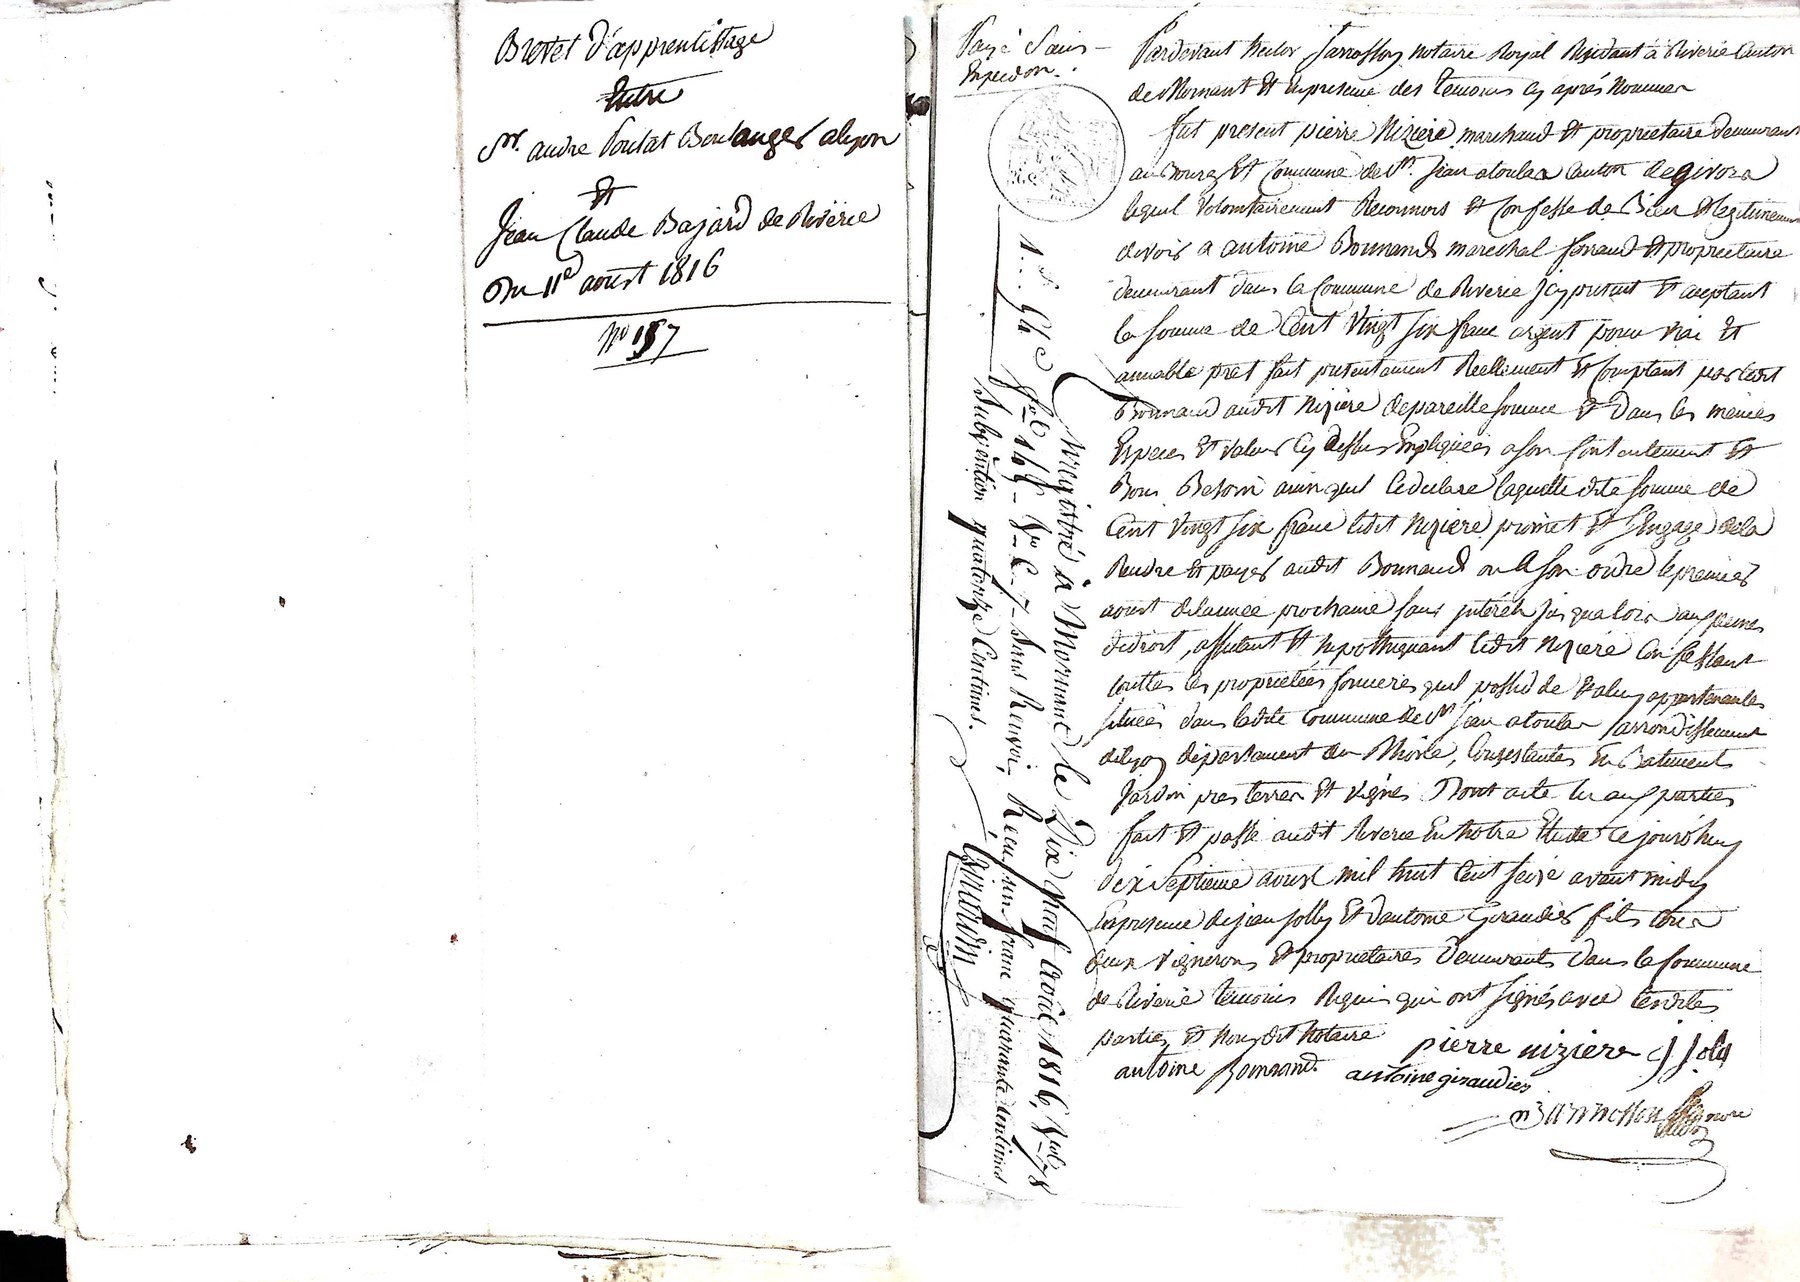 Brevet d'apprentissage
Entre
Sr. andre Poulat Boulanger alyon
Et
Jean Claude Bajard de Riverie
Du 11e aoust 1816
No 157
Payé Sans
Expedon.
Pardevant Nector Jannosson, notaire Royal Residant à Riverie Canton
de Mornant Et Enpresence des temoins cy après Nommer
fut present pierre Niziere marchand Et proprietaire demeurant
au Bourg Et Commune de St. Jean atoulas Canton de givors
lequel volontairement Reconnois Et Confesse de Bien Et legitimement
devoir a antoine Bonnand marechal ferrand Et proprietaire
demeurant dans la Commune de Riverie Jcy present Et aceptant
la somme de Cent Vingt six franc argent pour vrai Et
amiable pret fait presentement Reellement Et Comptant par ledit
Bonnand audit Niziere depareille somme Et dans les memes
Especes Et valeur cy dessus Expliquées ason Contentement Et
Bon Besoin ainsy quil le declare laquelle dite somme de
Cent Vingt six franc ledit Niziere promet Et sengage dela
Rendre Et payer audit Bonnand ou a son ordre le premier
aoust delannée prochaine sans intéréts jusqualors aux peines
dedroit, affectant Et hypothequant ledit Niziere
touttes les proprietées foncieres quil possede Et aluy appartenantes
situées dans ladite Commune de St. Jean atoulas arrondissement
delyon département du Rhône, Consistantes En Batiments
Jardin pres terres Et vignes Dont acte lu aux parties
fait Et passé audit Riverie En notre Etude ce jourdhuy
dix Septieme aoust mil huit Cent seize avant midy
Enpresence de jean Jolly Et dantoine Giraudier fils tous
deux vignerons Et proprietaires demeurants dans la Commune
de Riverie temoins Requis qui ont signés avec lesdites
parties Et Nousdit Notaire
pierre niziere J Joly
antoine Bonnand antoine giraudier
Jannosson
Enregistré à Mornant le Dix neuf août 1816, Vol 78
fo 145 Vo C 7 Sans Renvoi. Recu un franc quarante Centimes
Subvention quatorze Centimes.